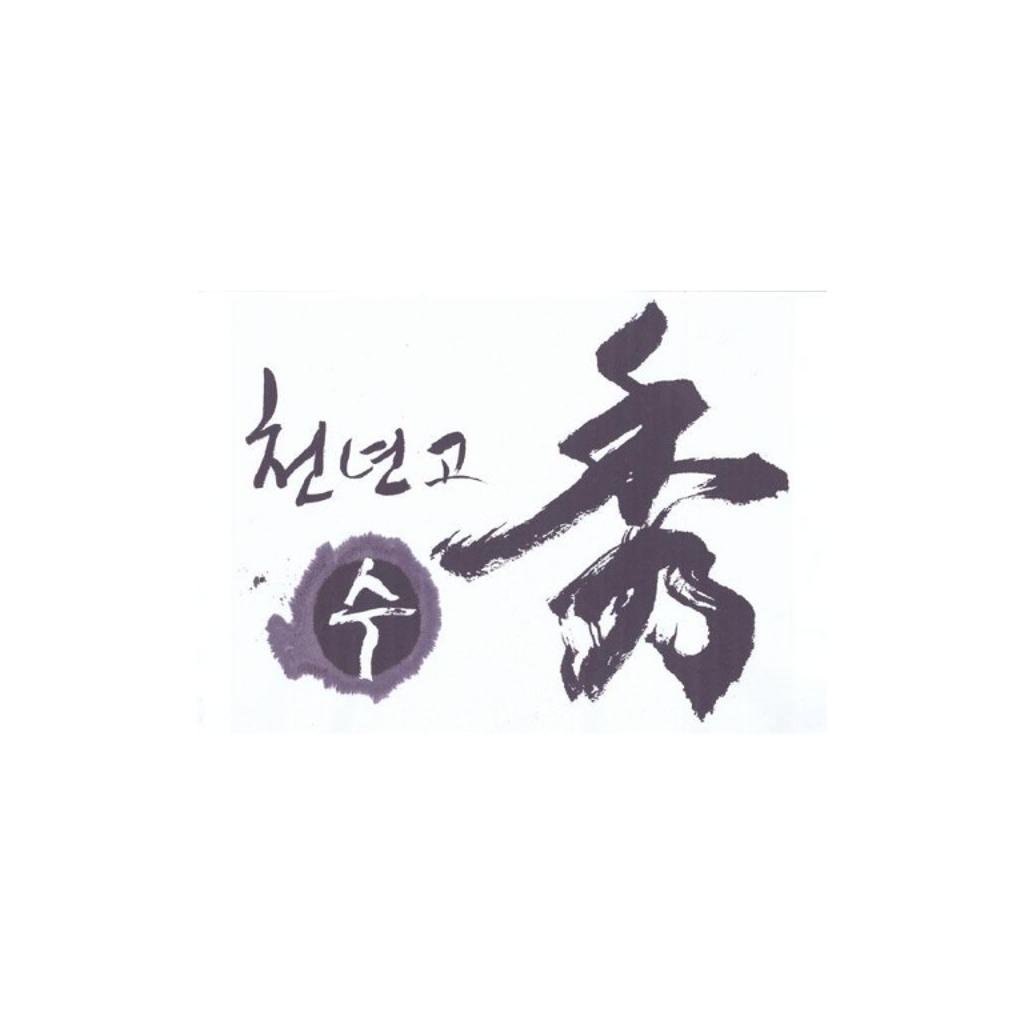 천년고
수
秀